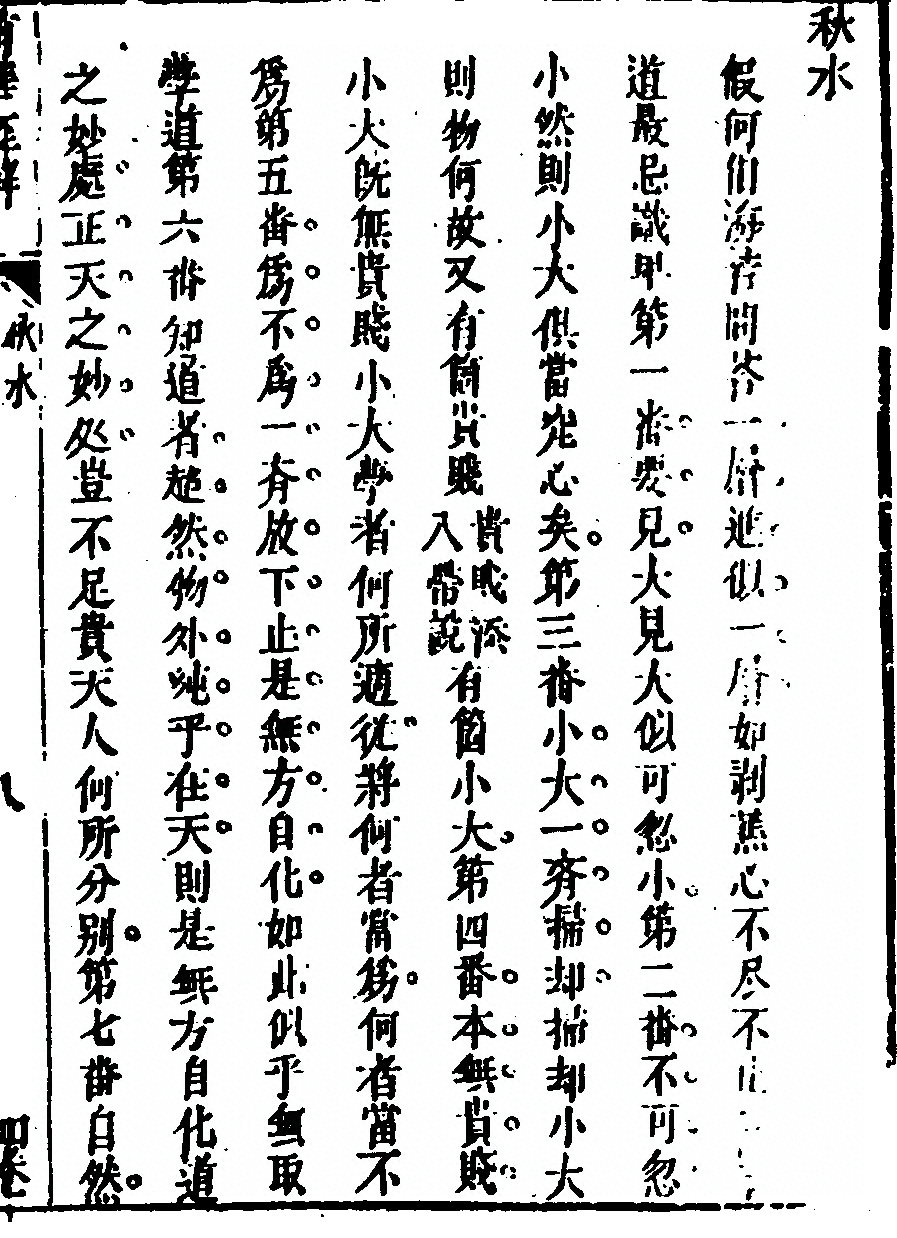 秋水
假何伯海若問答一層進似一層如剥蕉心不尽不止
道最忌識卑第一番要見大見大似可忽小第二番不可忽
小然則小大俱當定心矣第三番小大一齊掃却掃却小大
則物何故又有個貴賤貴賤添入帶說有箇小大第四番本無貴賤
小大既無貴賤小大學者何所適從將何者當爲何者當不
爲第五番爲不爲一齊放下止是無方自化如此似乎無取
學道第六番知道者超然物外純乎在天則是無方自化道
之妙處正天之妙处豈不足貴天人何所分别第七番自然
秋水
八
四卷